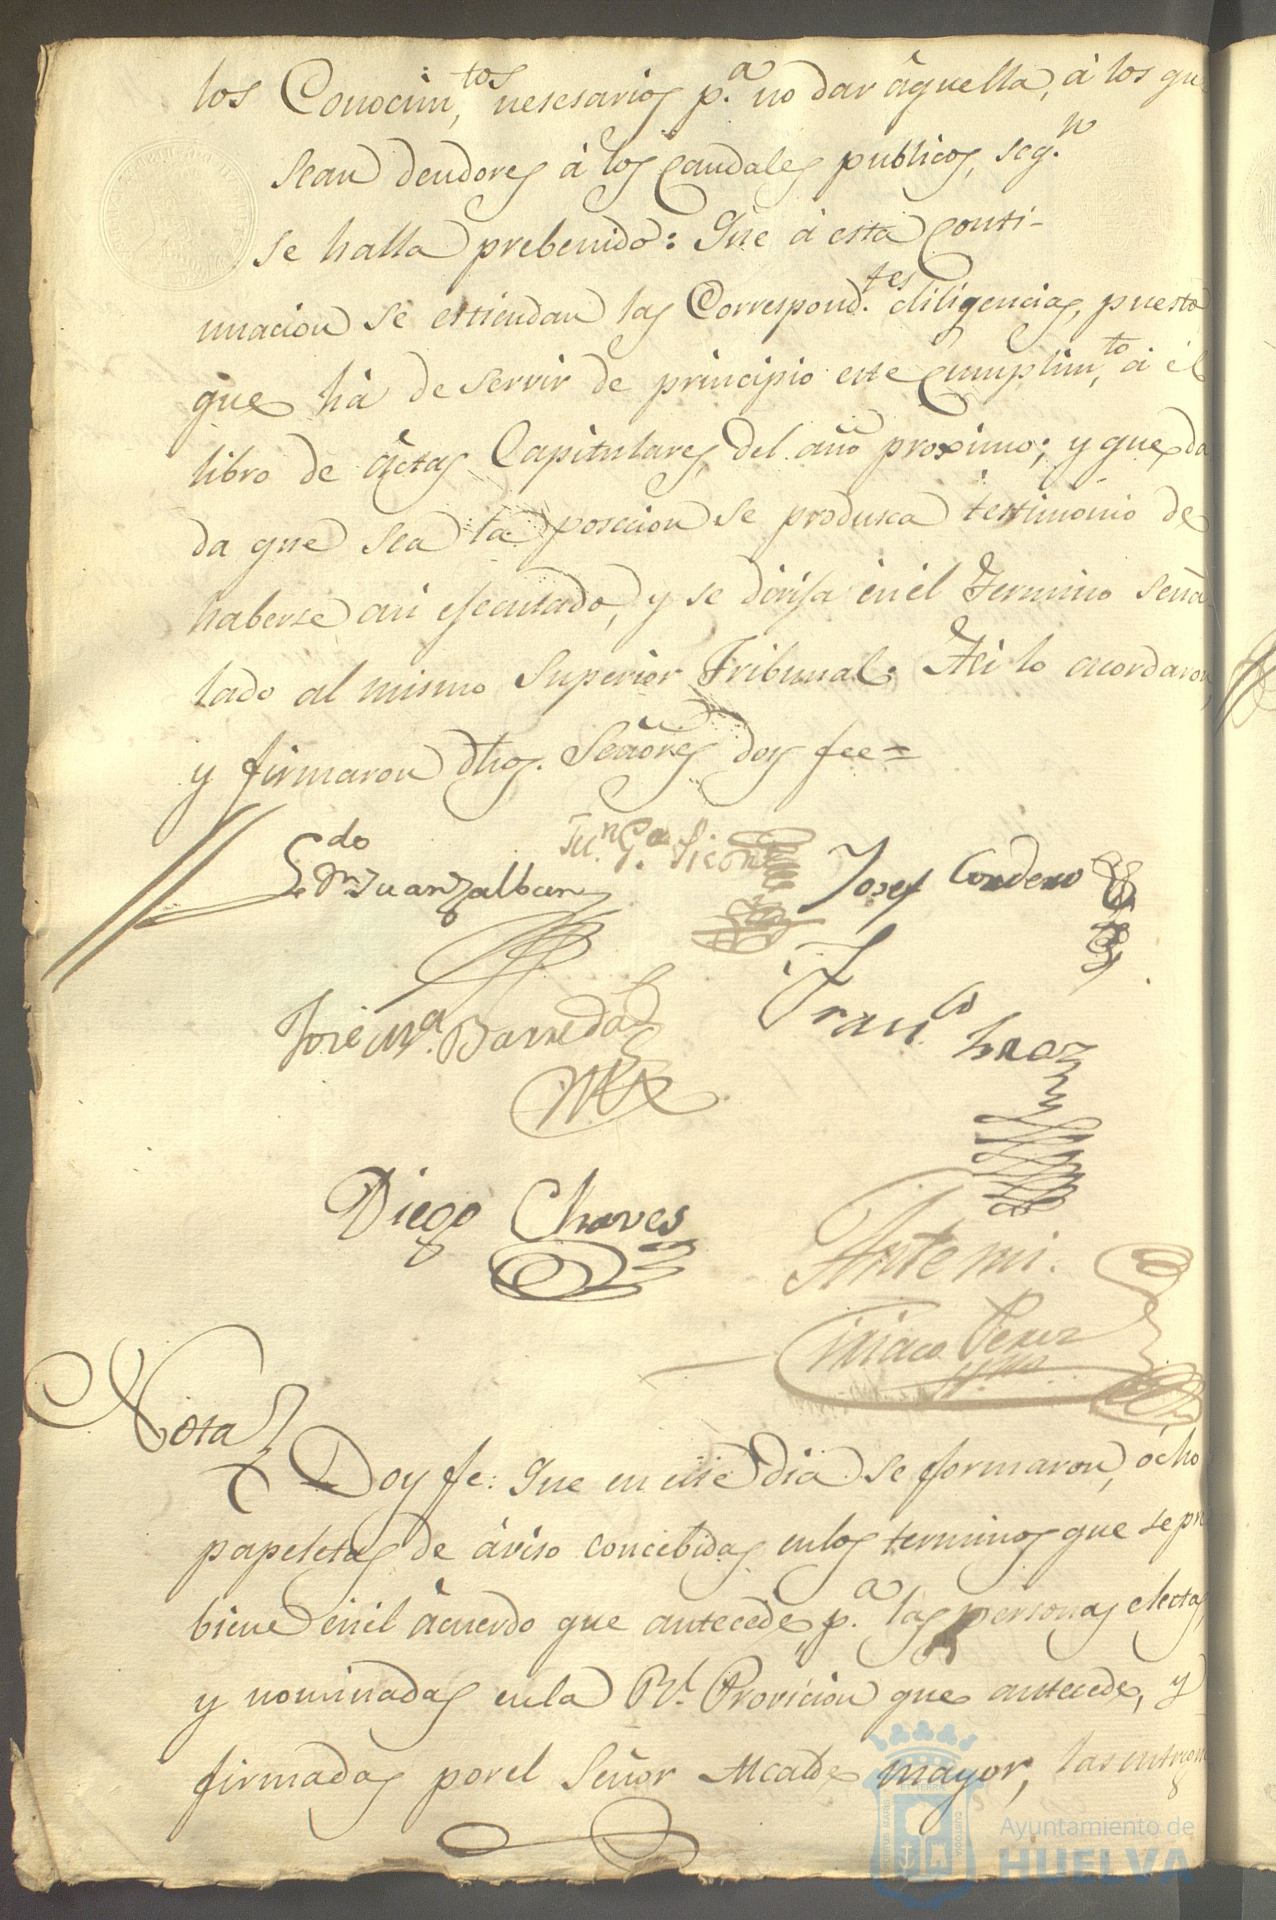 los Conocim,tos nesesarios p.a no dar âquella, à los que
sean deudores à los Caudales publicos, seg.n
se halla prebenido: Que à esta Conti-
nuacion se estiendan las Correspond.tes diligencias, puesto
que hà de servir de principio este Cumplim,to à el
libro de âctas Capitulares, del año proximo; y que da
da que sea la posecion se produsca testimonio de
haberse asi ejecutado, y se dirija en el Termino seña-
lado al mismo Superior Tribunal. Asi lo acordaron,
y firmaron dhos. Señores doy fee=
Ldo Dn Juan Zalban
Ju.n G.a
Josef Cordero
José M.a Barreda
Fran.co
Diego Chaves
Ante mi.
Ciriaco Perez
Nota
Doy fe: Que en este dia se formaron, ócho
papeletas de âviso concebidas en los terminos que se pre
biene en el âcuerdo que antecede, p.a las personas electas,
y nominadas en la Rl. Provicion que antecede, y
firmadas por el Señor Alcalde mayor, las
Ayuntamiento de
HUELVA